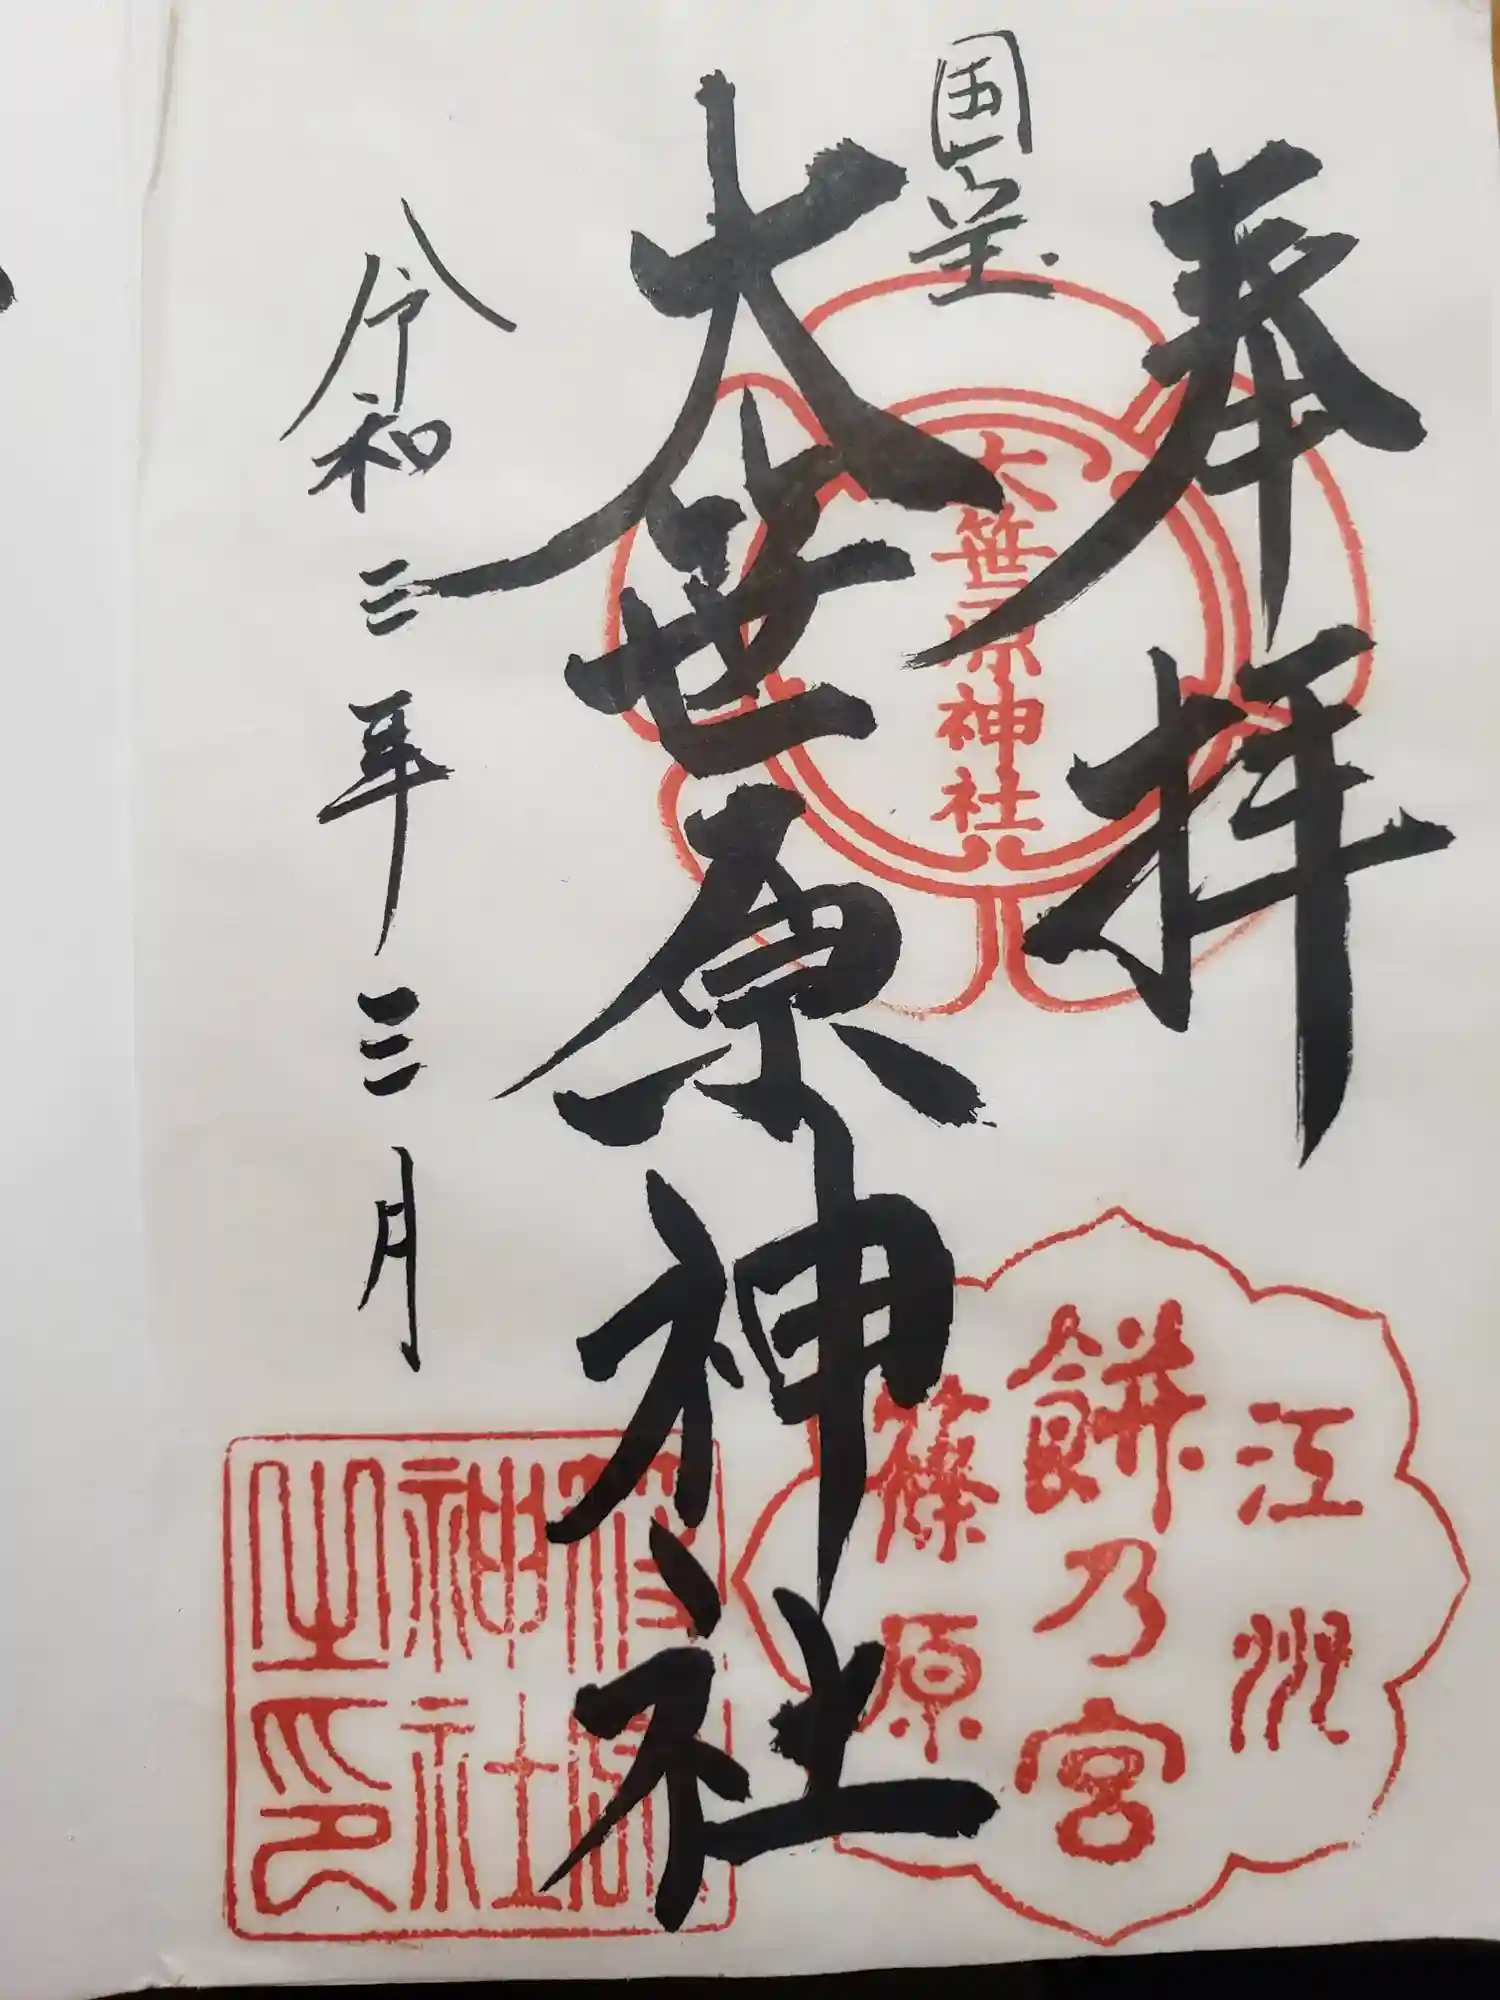 奉拝
国宝
大笹原神社
大笹原神社
令和三年三月
江州
餅乃宮
篠原
篠原
神社
之印